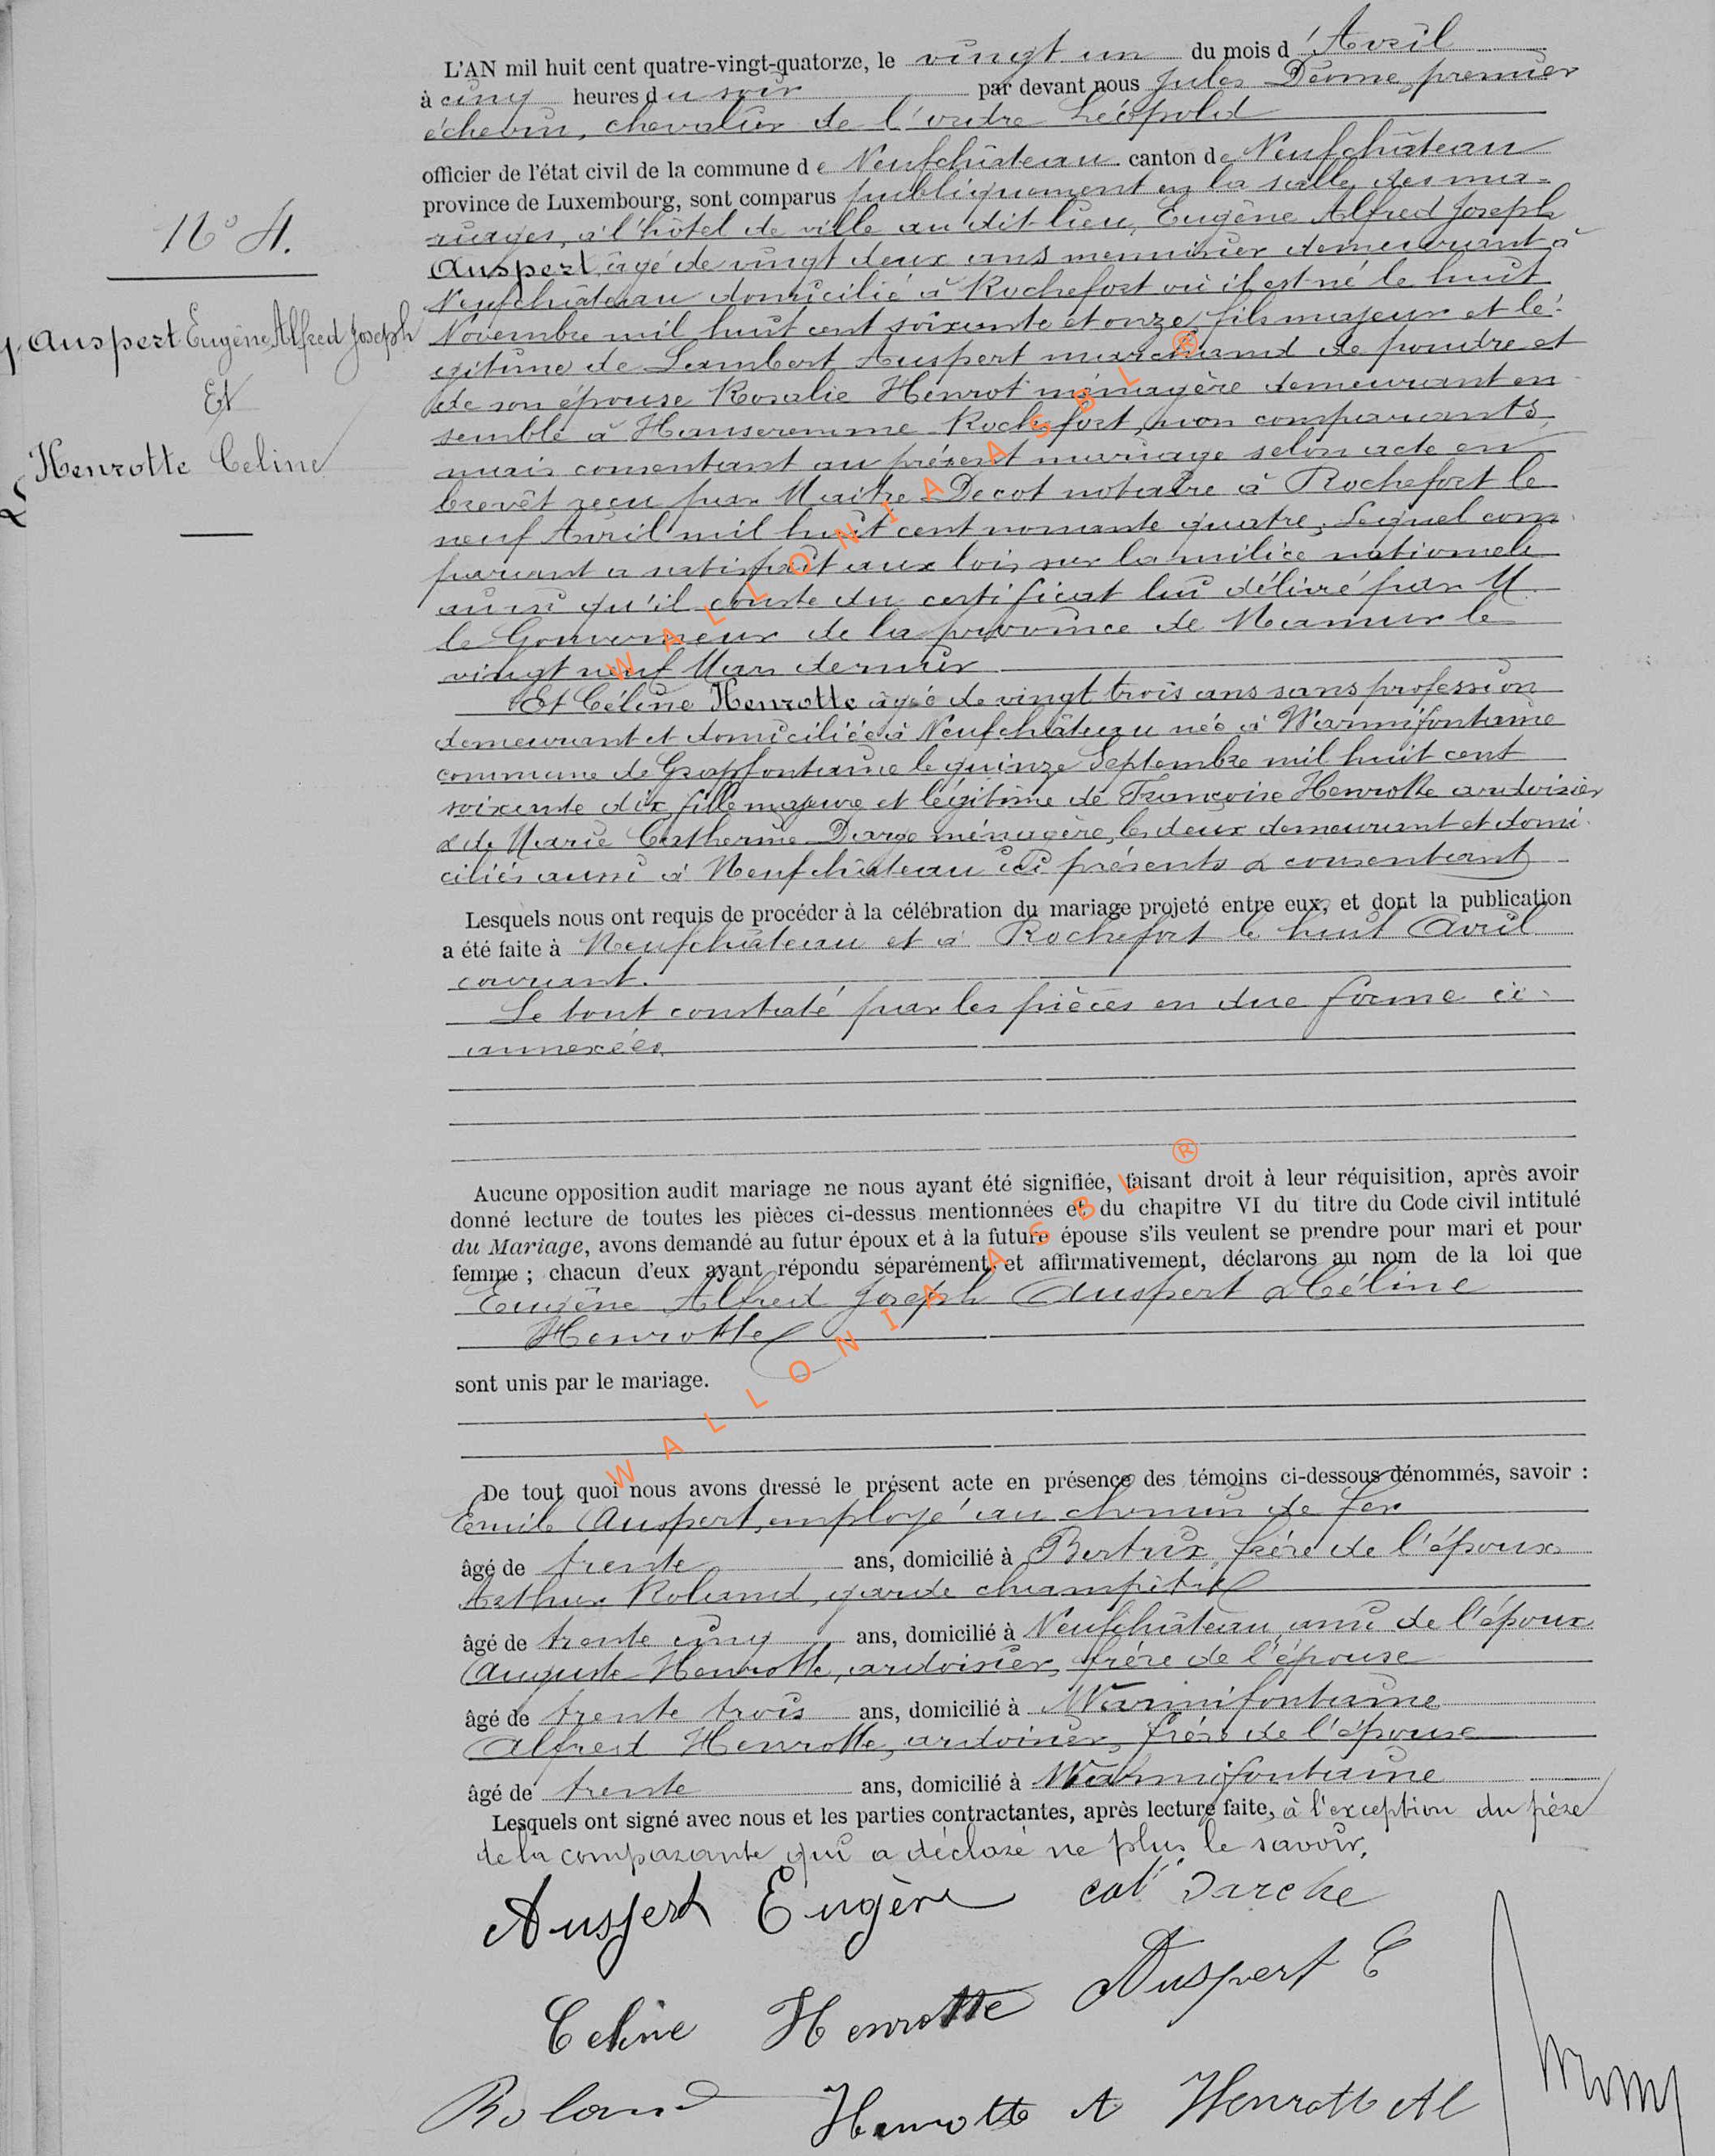 L'AN mil huit cent quatre-vingt-quatorze, le vingt un du mois d'Avril
à cinq heures du soir par devant nous Jules premier
échevin, chevalier de l'ordre Léopold
officier de l'état civil de la commune de Neufchâteau canton de Neufchâteau
province de Luxembourg, sont comparus publiquement en la salle des ma-
riages, à l'hôtel de ville au dit lieu, Eugène Alfred Joseph
Auspert âgé de vingt deux ans menuisier demeurant à
Neufchâteau domicilié à Rochefort où il est né le huit
Novembre mil huit cent soixante et onze, fils majeur et lé-
gitime de Lambert Auspert marchand de poudre et
de son épouse Rosalie Henrot ménagère demeurant en
semble à Hanseremme Rochefort, non comparants
mais consentant au présent mariage selon acte en
brevêt reçu par Maitre Decot notaire à Rochefort le
neuf Avril mil huit cent nonante quatre. Lequel com
parant a satisfait aux lois sur la milice nationale
ainsi qu'il conste du certificat lui délivré par M
le Gouverneur de la province de Namur le
vingt neuf Mars dernier
Et Céline Henrotte agée de vingt trois ans sans profession
demeurant et domiciliée à Neufchâteau née à Warmifontaine
commune de Grapfontaine le quinze Septembre mil huit cent
soixante dix, fille majeure et légitime de Françoise Henrotte ardoisier
& de Marie Catherine Darge ménagère, les deux demeurant et domi-
ciliés aussi à Neufchâteau ici présents & consentant
N° 4.
Auspert Eugène Alfred Joseph
Et
Henrotte Celine
Lesquels nous ont requis de procéder à la célébration du mariage projeté entre eux, et dont la publication
a été faite à Neufchâteau et à Rochefort le huit Avril
courant.
Le tout constaté par les pièces en due forme ci-
annexées.
Aucune opposition audit mariage ne nous ayant été signifiée, faisant droit à leur réquisition, après avoir
donné lecture de toutes les pièces ci-dessus mentionnées et du chapitre VI du titre du Code civil intitulé
du Mariage, avons demandé au futur époux et à la future épouse s'ils veulent se prendre pour mari et pour
femme ; chacun d'eux ayant répondu séparément et affirmativement, déclarons au nom de la loi que
Eugène Alfred Joseph Auspert & Céline
Henrotte
sont unis par le mariage.
De tout quoi nous avons dressé le présent acte en présence des témoins ci-dessous dénommés, savoir :
Emile Auspert, employé au chemin de fer
âgé de trente ans, domicilié à Bertrix, frère de l'époux
Arthur Roland, garde champêtre
âgé de trente cinq ans, domicilié à Neufchâteau, ami de l'époux
Auguste Henrotte, ardoisier, frère de l'épouse
âgé de trente trois ans, domicilié à Warmifontaine
Alfred Henrotte, ardoisier, frère de l'épouse
âgé de trente ans, domicilié à Warmifontaine
Lesquels ont signé avec nous et les parties contractantes, après lecture faite, à l'exception du père
de la comparante qui a déclaré ne plus le savoir.
Auspert Eugène cat Darche
Celine Henrotte Auspert E
Roland Henrotte A Henrotte Al
WALLONIA ASBL ®
WALLONIA ASBL ®